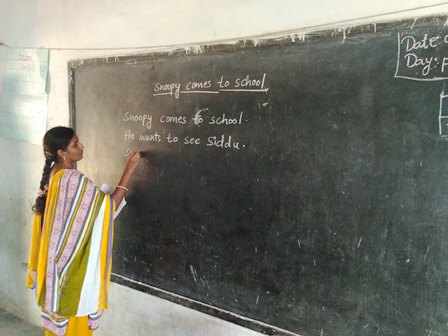 Snoopy comes to school
Snoopy comes to school.
He wants to see Siddu.
Date:
Day: